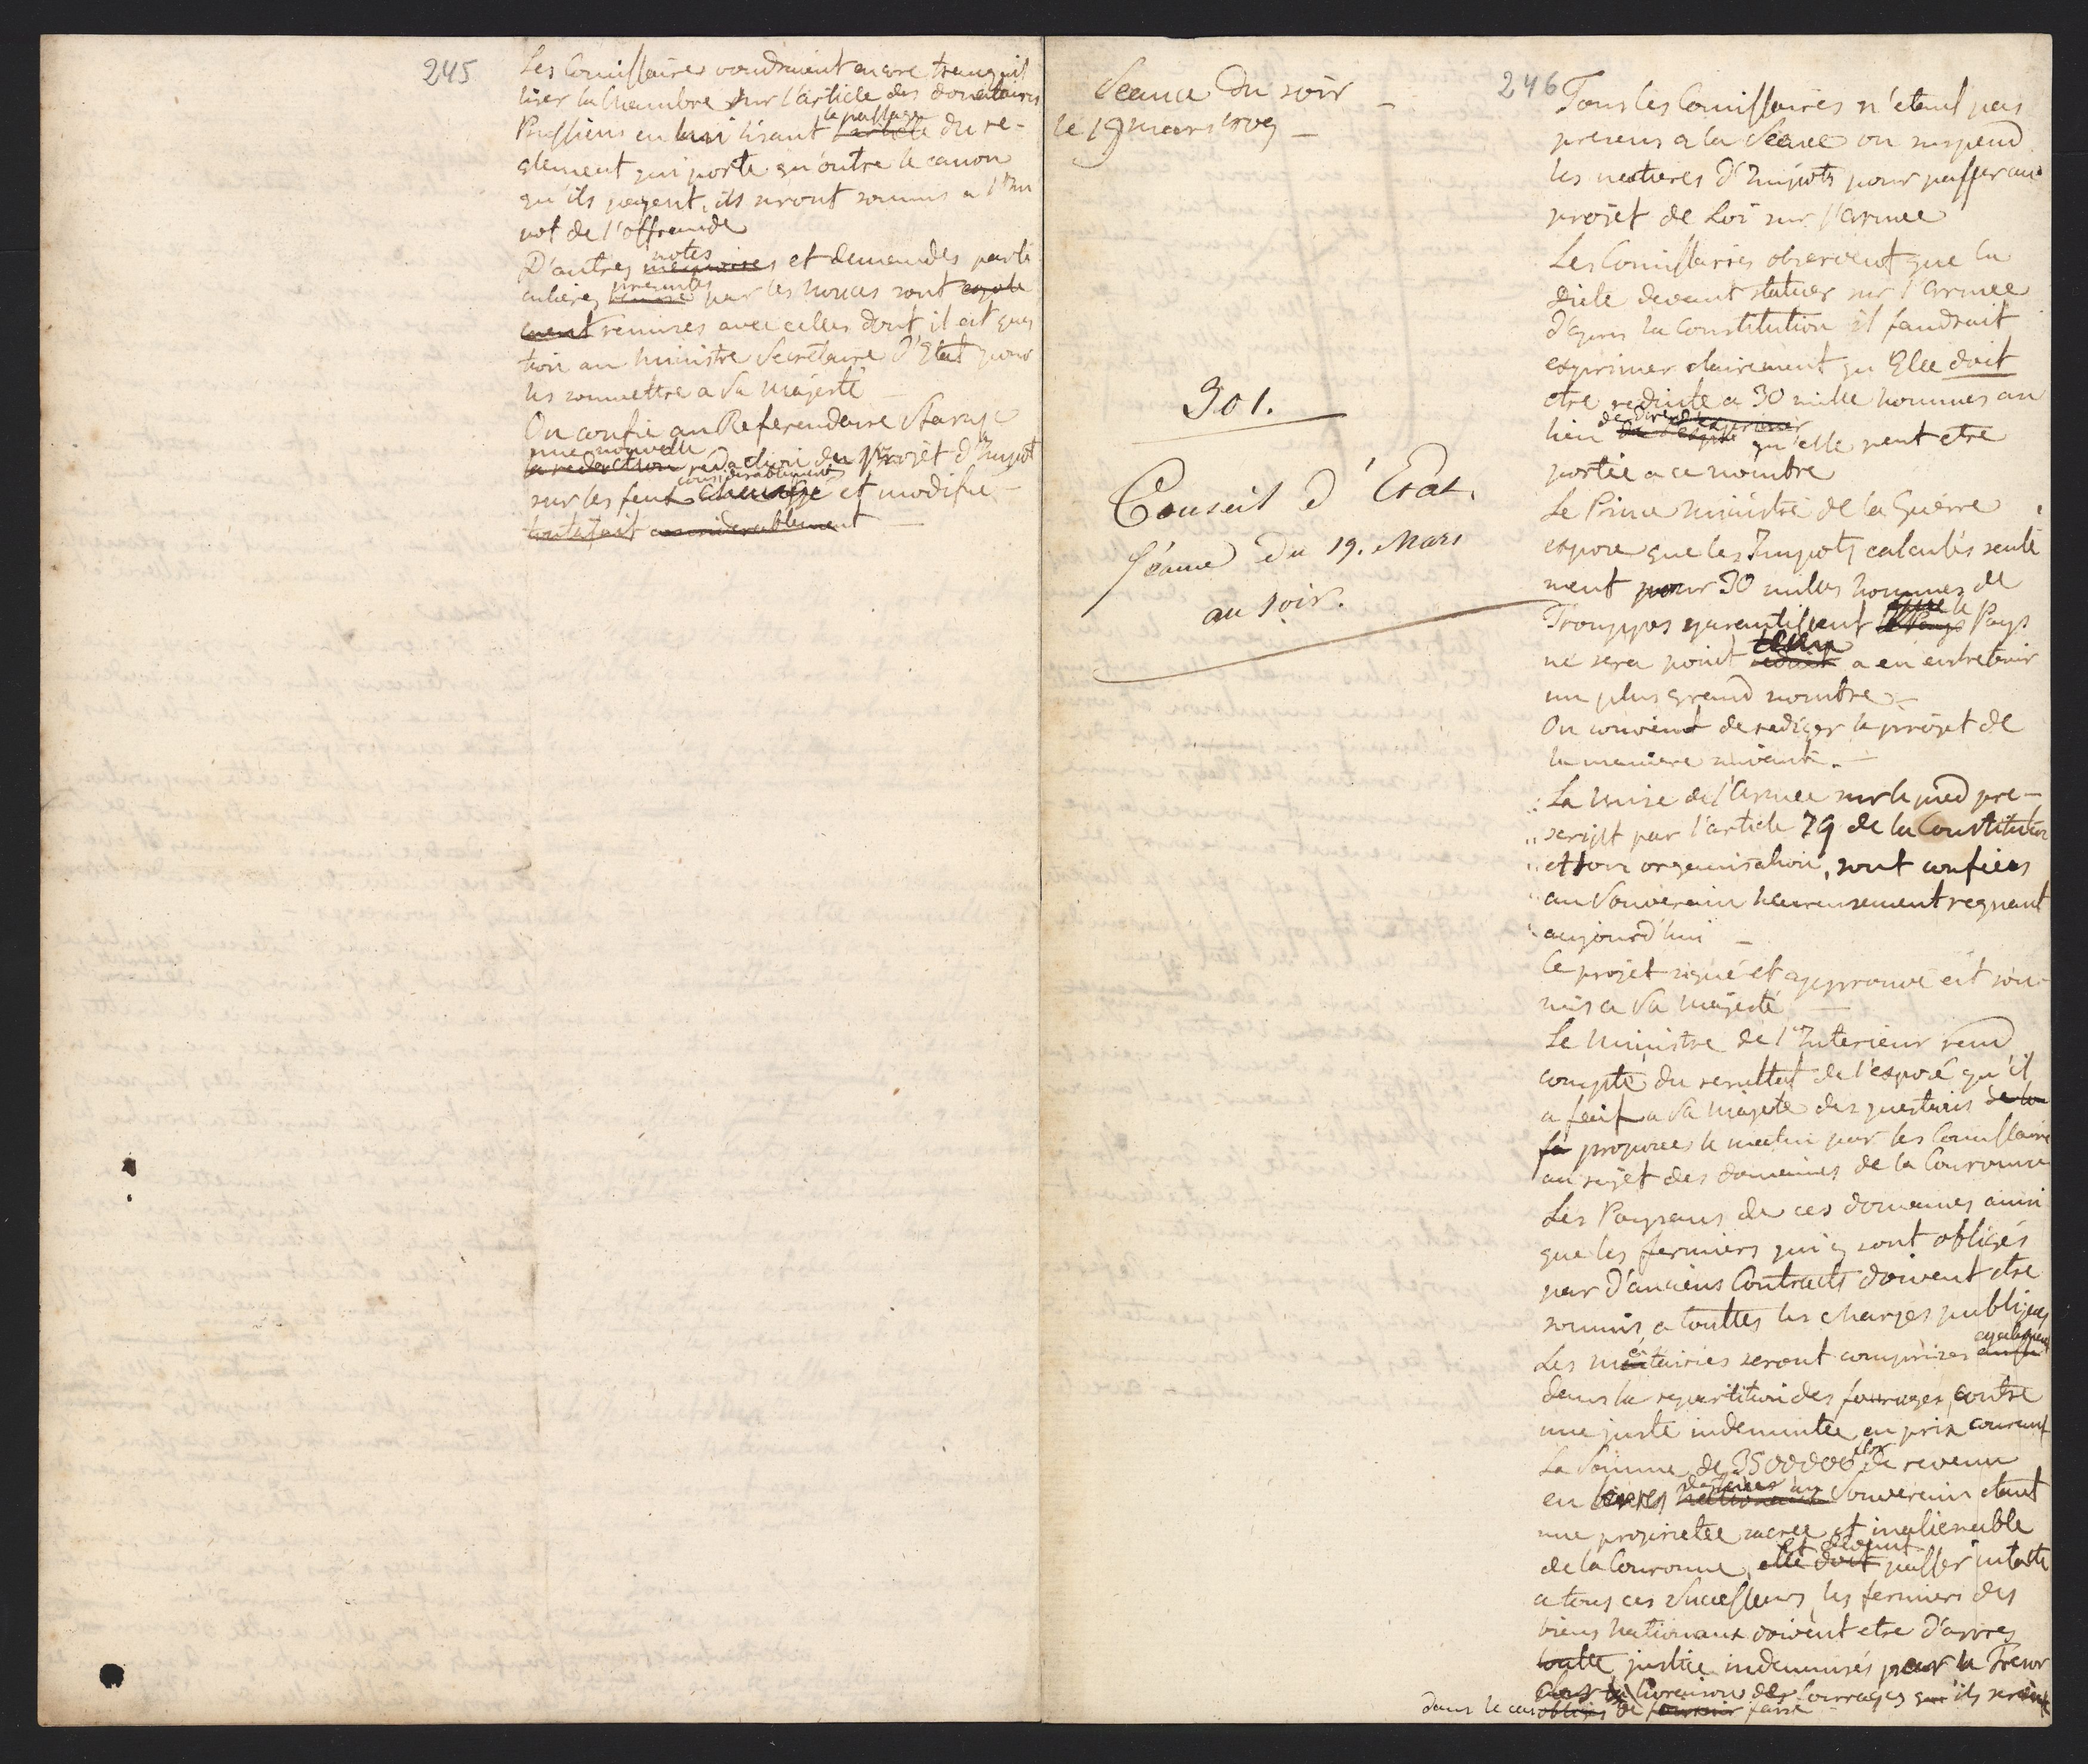 245
Les Comissaires voudraient encore tranquil
liser la Chambre sur l'article des donataires
le passage
Prussiens en lui lisant l'article du re-
glement qui porte qu'outre le canon
qu'ils payent, ils seront soumis a l'Im
pot de l'offrande
notes
D'autres memoires et demandes parti
presentes
culieres par les nonces sont egale
ment remises avec celles dont il est ques
tion au Ministre Secretaire d'Etat pour
les soumettre a Sa Majesté —
On confie au Referendaire
une nouvelle
la redaction redaction du projet d'Impot
considerablement
sur les feux changé et modifié —
toutafait considerablement —
Seance du soir —
le 19 mars 1809 —
301.
Conseil d'Etat.
Séance du 19. Mars
au soir.
246
Tous les Comissaires n'etant pas
presens a la Seance on suspend
les matieres d'Impots pour passer au
projet de Loi sur l'armee
Les Comissaires observent que la
Diete devant statuer sur l'armee
d'apres la Constitution il faudrait
exprimer clairement qu'Elle doit
etre reduite a 30 mille hommes au
de dire d'exprimer
lieu qu'elle peut etre
portée a ce nombre
Le Prince Ministre de la Guerre
expose que les Impots calculés seule
ment pour 30 milles hommes de
que le
Trouppes garantissent le Pays Pays
tenu
ne sera point a en entretenir
un plus grand nombre —
On convient de rediger le projet de
la maniere suivante. —
La mise de l'Armee sur le pied pre-
script par l'article 79 de la Constitution
et son organisation, sont confiees
au Souverain heureusement regnant
aujourd'hui —
Ce projet signé et approuvé est sou-
mis a Sa Majesté —
Le Ministre de l'Interieur rend
compte du resultat de l'exposé qu'il
a fait a Sa Majeste des questions de la
fa proposees le matin par les Comissaires
au sujet des domaines de la Couronne
Les Paysans de ces domaines ainsi
que les fermiers qui y sont obligés
par d'anciens Contracts doivent etre
soumis a touttes les charges publiques
egalement
Les metairies seront comprises aussi
dans la repartition des fourages, contre
une juste indemnitée au prix courant
La Somme de 3500000 flor de revenu
destinées au
en terres nationaux Souverain etant
une proprietée sacrée et inalienable
et devant
de la Couronne, elle doit passer intacte
a tous ces Successeurs, les fermiers des
biens Nationaux doivent etre d'apres
toutte justice indemnisés par le Tresor
dans la livraison des fourrages que ils seroient
dans le cas obligés de fournir faire